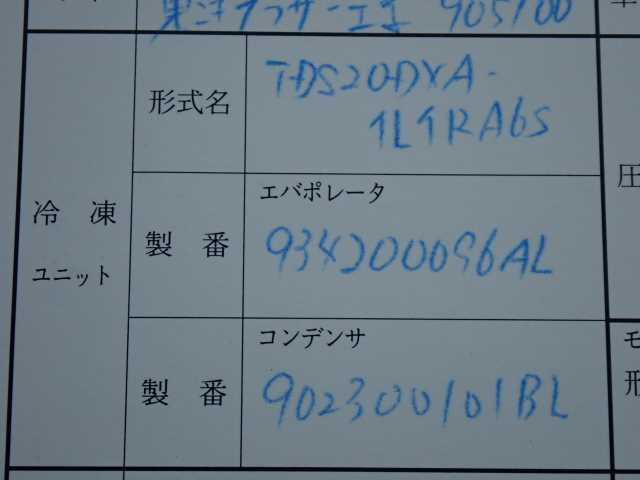 905100
冷凍
ユニット
形式名
TDS20DXA-
1L1RA6S
製番
エバポレータ
934200096AL
製番
コンデンサ
902300101BL
圧
モ
形